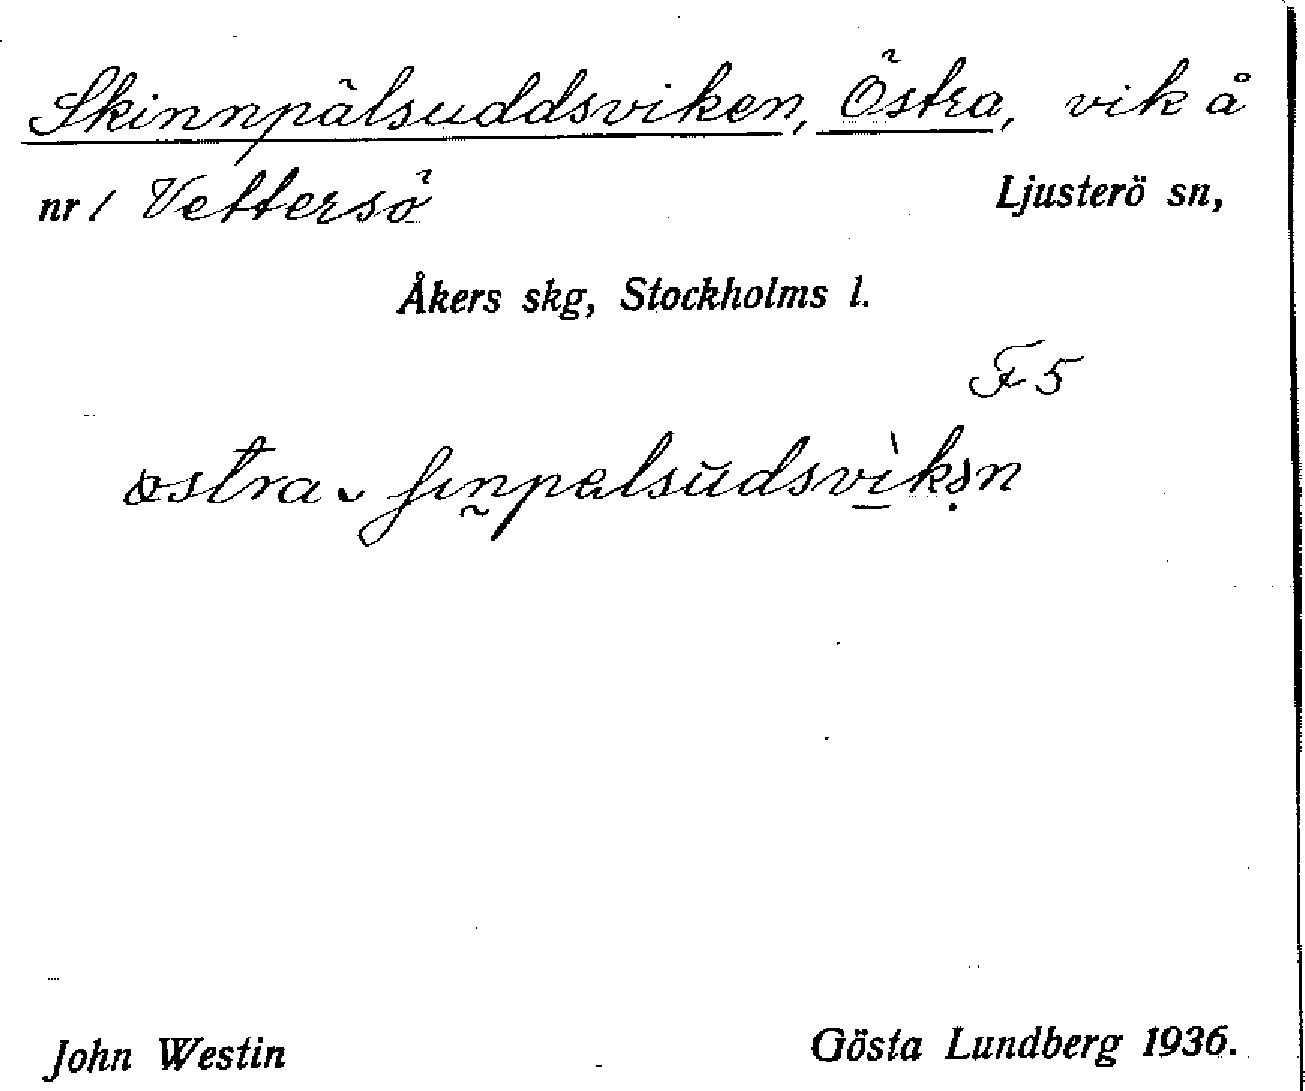 Skinnpälsuddsviken, Östra, vik å
nr 1 Vettersö Ljusterö sn,
Åkers skg, Stockholms l.
F5
John Westin Gösta Lundberg 1936.